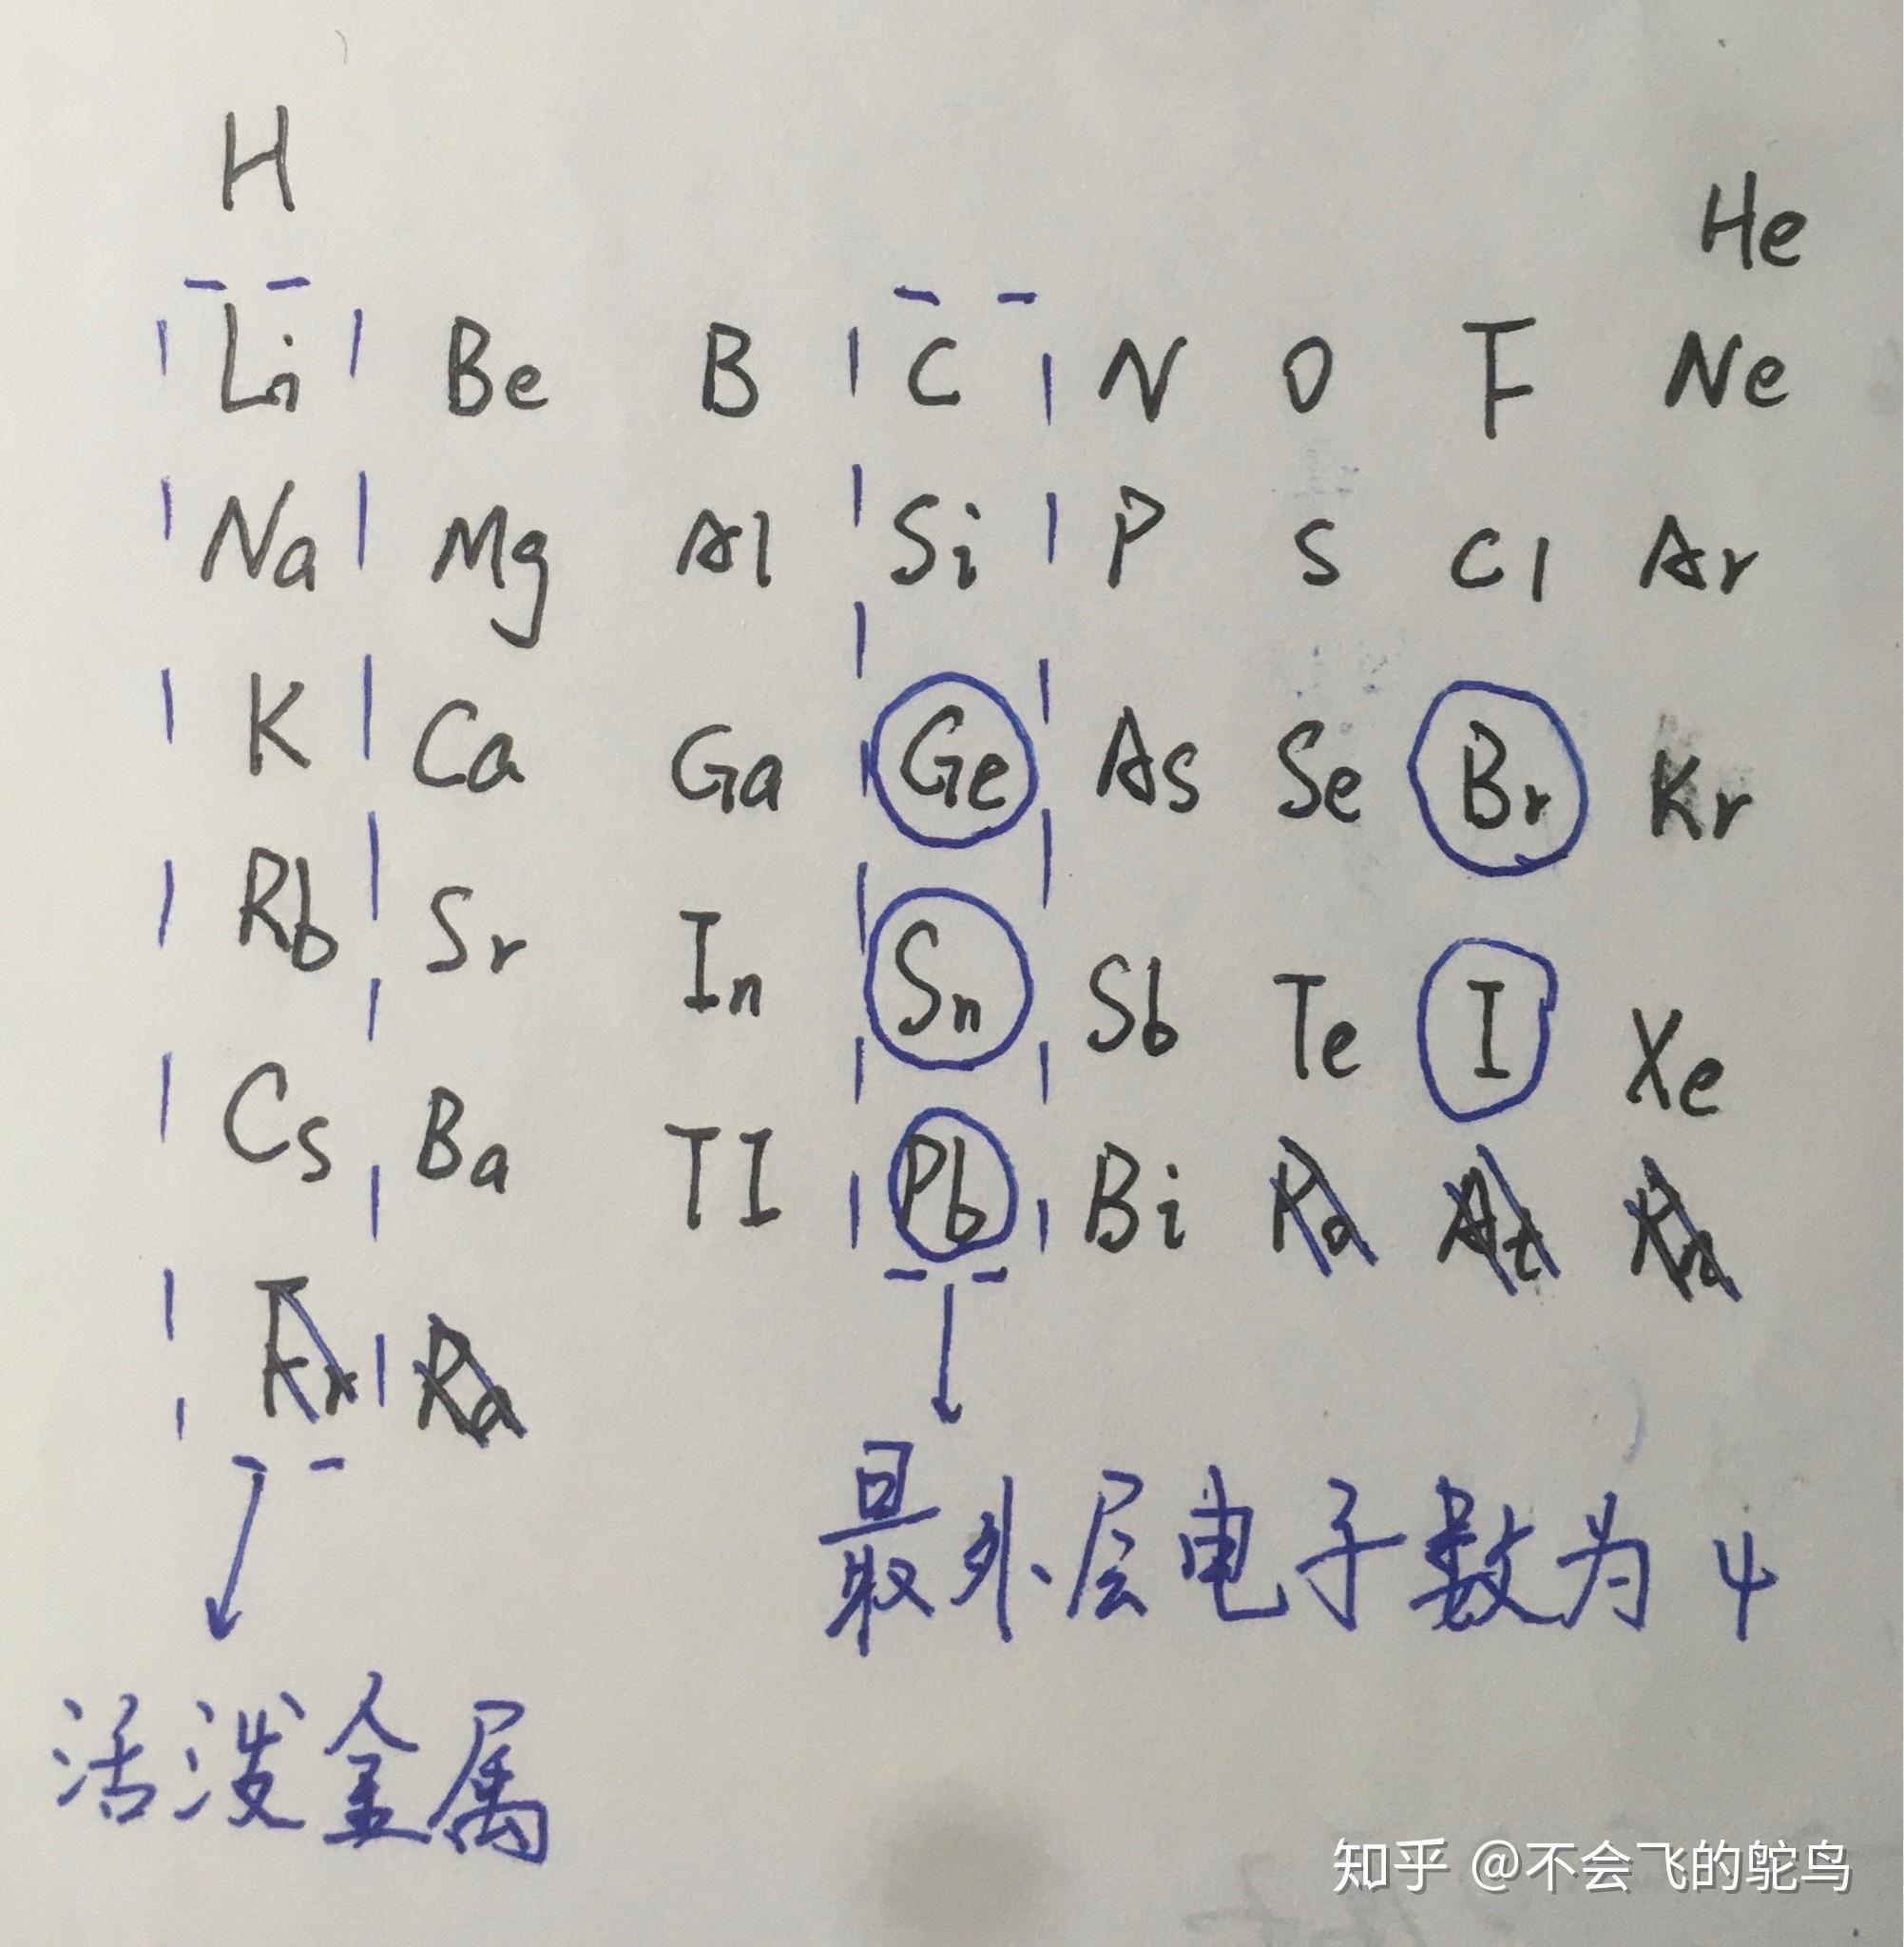 H
He
Li Be B C N O F Ne
Na Mg Al Si P S Cl Ar
K Ca Ga Ge As Se Br Kr
Rb Sr In Sn Sb Te I Xe
Cs Ba Tl Pb Bi Po At Rn
Fr Ra
最外层电子数为4
活泼金属
知乎 @不会飞的鸵鸟